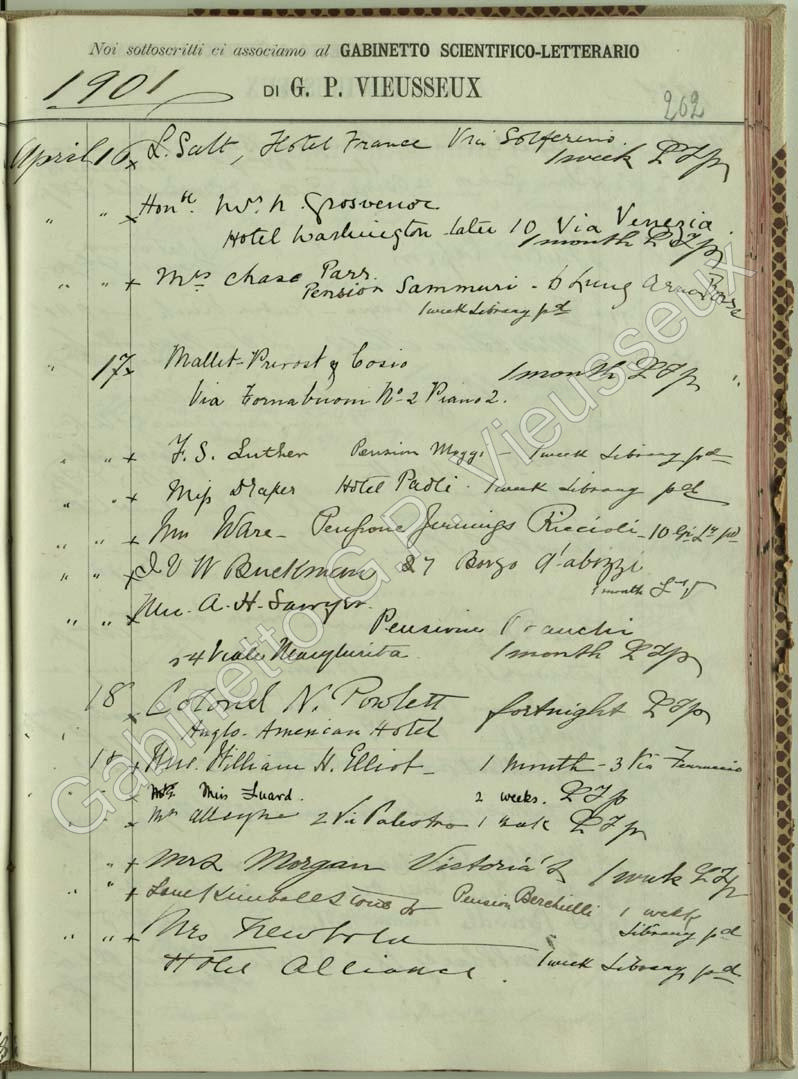 Noi sottoscritti ci associamo al GABINETTO SCIENTIFICO-LETTERARIO
1901
DI G. P. VIEUSSEUX
262
April 16 L. Salt, Hotel France Via Solferino.
1 week
" " Honble Mrs N. Grosvenor
Hotel Washington later 10 Via Venezia
1 month
" " + Mrs Chase Parr
Pension Sammuri - 6 Lung Arno
1 week Library pd
" 17 Mallet-Prevost y Cosio 1 month "
Via Tornabuoni No 2 Piano 2.
" " + F. S. Luther Pension 1 week Library pd
" " + Miss Draper Hotel Paoli. 1 week Library pd
" " + Ware - Pensione Jennings Riccioli - 10
" " W Buckman 27 Borgo d'abizzi
1 month
" " + A. H. Sawyer.
Pensione
54 Viale Margherita. 1 month
18 Colonel N. Powlett fortnight
Anglo-American Hotel
18 + William H. Elliot - 1 month - 3 Via Ferruccio
Miss Luard. 2 weeks.
Mrs Alleyne 2 Via Palestro 1 week
" + Mrs Morgan Victoria 1 week
" " + Pension Berchielli 1 week
Library pd
" " + Mrs Newbold
Hotel Alliance. 1 week Library pd
Gabinetto G.P. Vieusseux